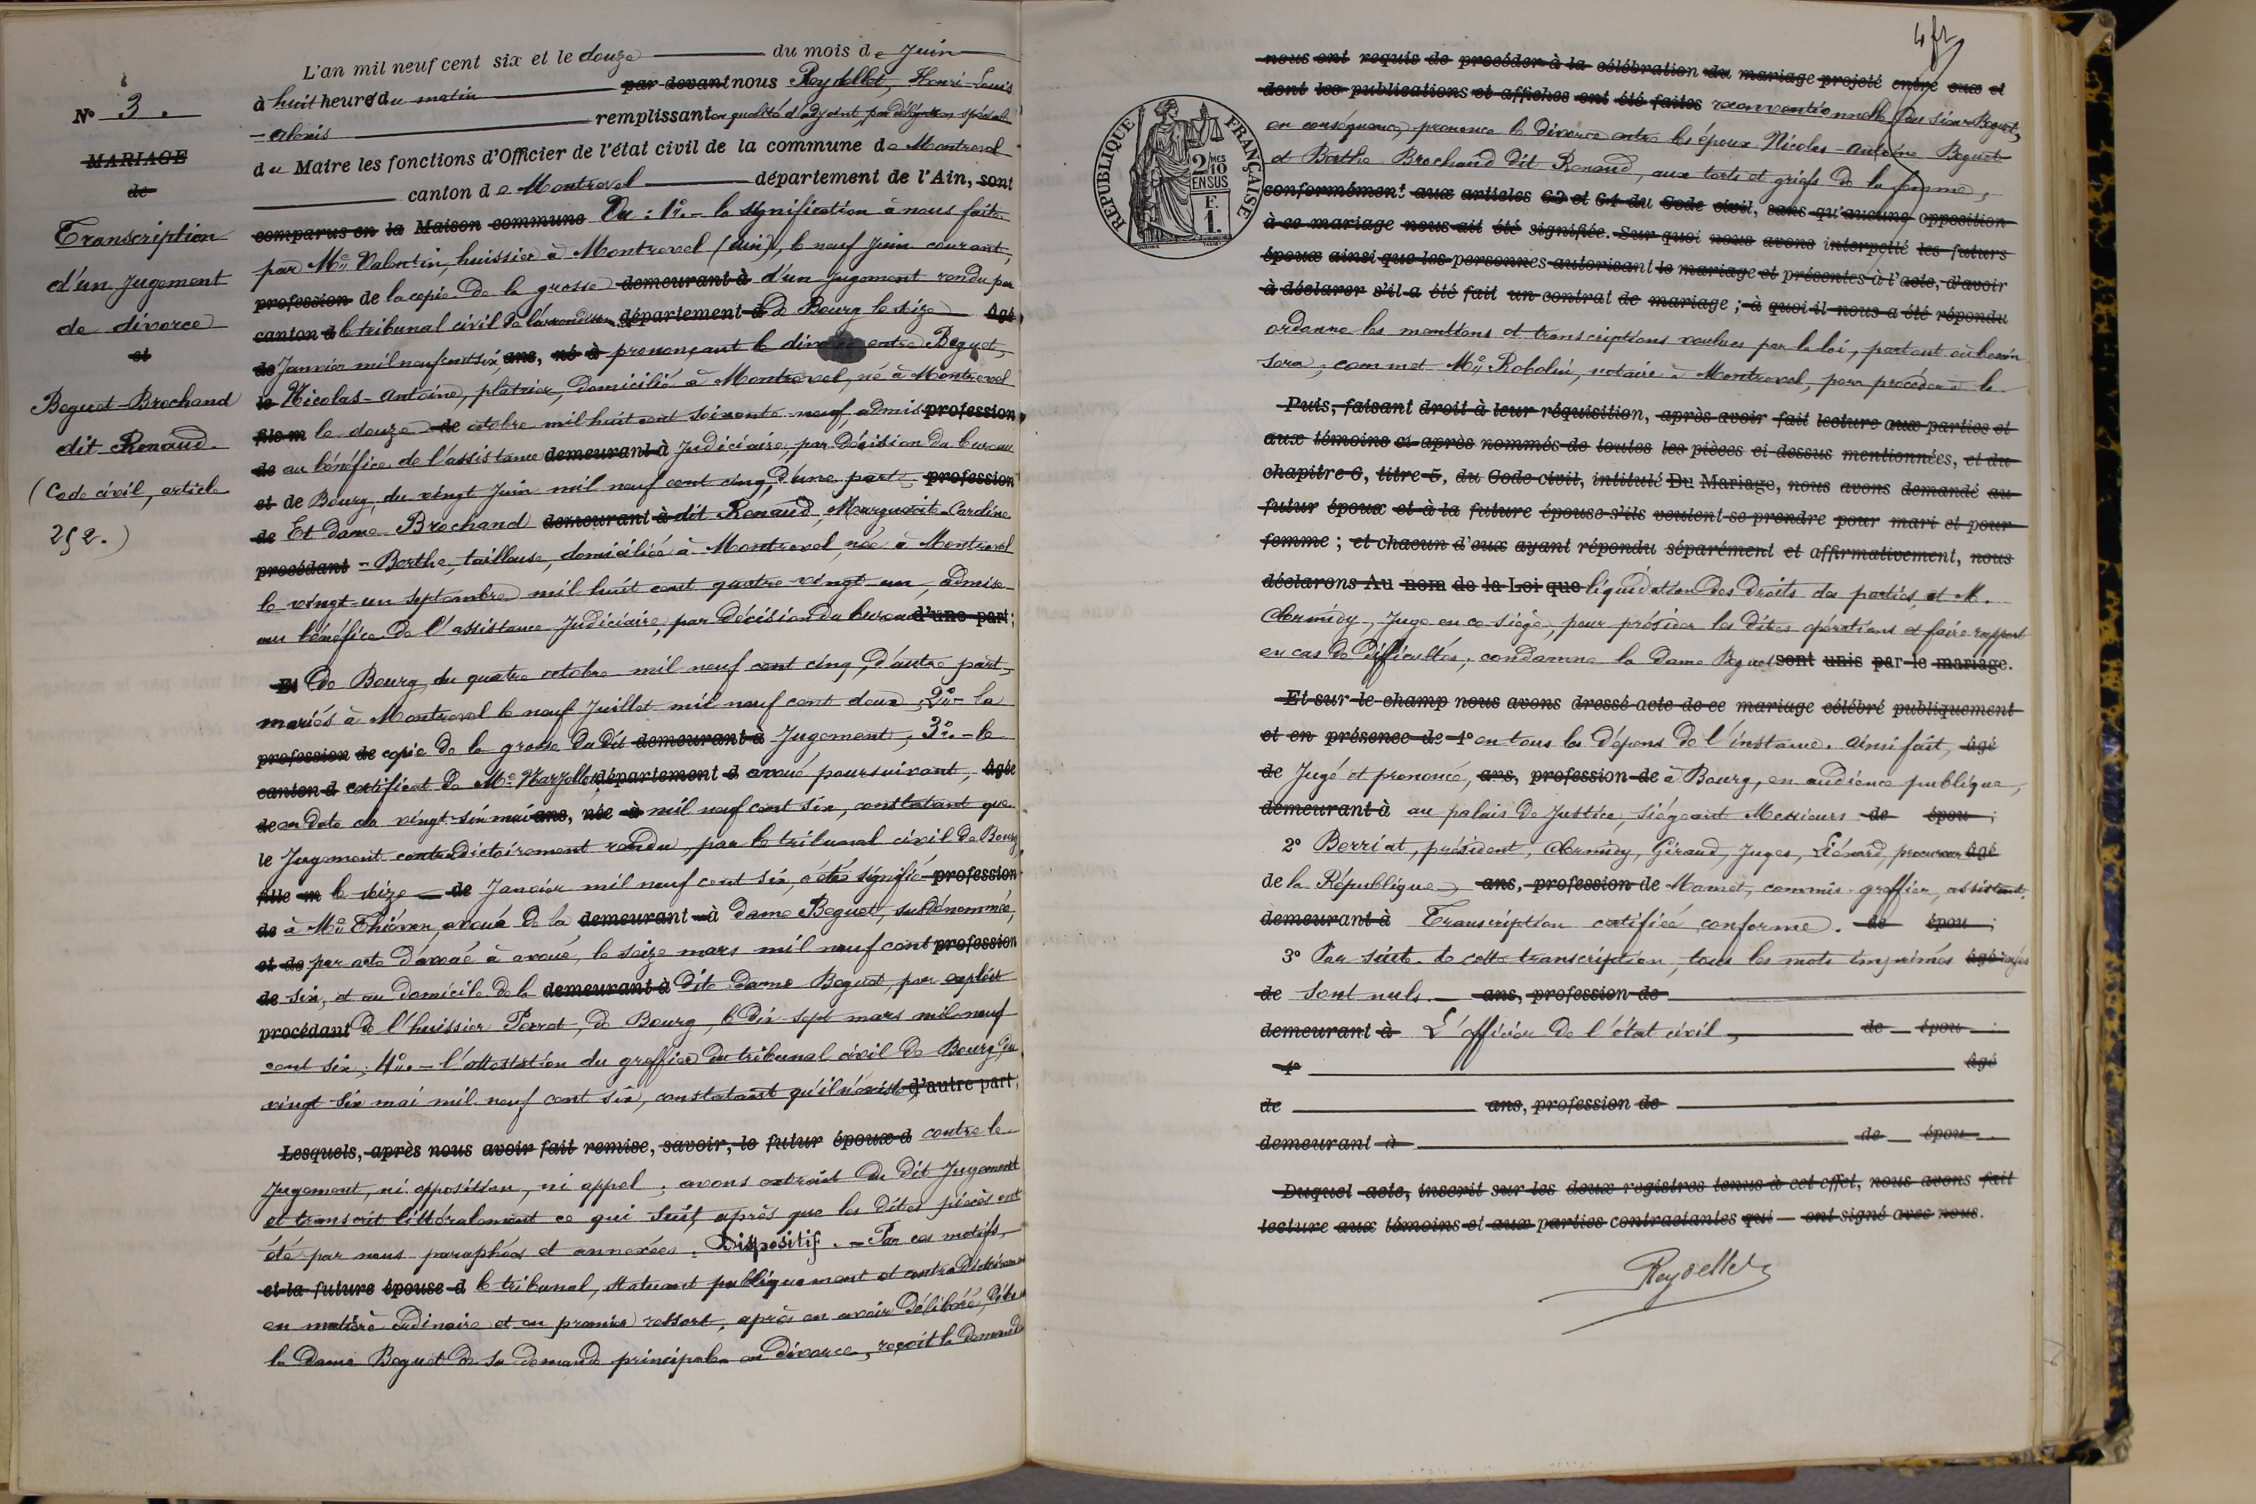 L'an mil neuf cent six et le douze du mois de Juin
à huit heures du matin par devant nous Reydellet, Henri-Louis
-Alexis remplissant en qualité d'adjoint, par délégation spéciale
du Maire les fonctions d'Officier de l'état civil de la commune de Montrevel
canton de Montrevel département de l'Ain, sont
comparus en la Maison commune Vu : 1º.- la signification à nous faite
par Me Valentin, huissier à Montrevel (Ain), le neuf Juin courant,
profession de la copie de la grosse demeurant à d'un Jugement rendu par
canton d le tribunal civil de l'arrondissem. département d de Bourg le seize âgé
de Janvier mil neuf cent six, ans, né à prononçant le divorce entre Beguet,
le Nicolas-Antoine, plâtrier, domicilié à Montrevel, né à Montrevel
fils m le douze de octobre mil huit cent soixante-neuf, admis profession
de au bénéfice de l'assistance demeurant à Judiciaire, par décision du bureau
et de Bourg, du vingt Juin mil neuf cent cinq, d'une part, profession
de Et dame Brochand demeurant à dit Renaud, Marguerite-Cardine
procédant -Berthe, tailleuse, domiciliée à Montrevel, née à Montrevel
le vingt-un septembre mil huit cent quatre-vingt-un, admise
au bénéfice de l'assistance Judiciaire, par décision du bureau d'une part ;
Et de Bourg, du quatre octobre mil neuf cent cinq, d'autre part,
mariés à Montrevel le neuf Juillet mil neuf cent deux ; 2º.- la
profession de copie de la grosse du dit demeurant à Jugement ; 3º.- le
canton d certificat de Me département d avoué poursuivant, âgée
de en date du vingt-six mai ans, née à mil neuf cent six, constatant que
le Jugement contradictoirement rendu par le tribunal civil de Bourg,
fille m le seize de Janvier mil neuf cent six, a été signifié profession
de à Me Thiéven, avoué de la demeurant à dame Beguet, susdénommée,
et de par acte d'avoué à avoué, le seize mars mil neuf cent profession
de six, et au domicile de la demeurant à dite dame Beguet, par exploit
procédant de l'huissier Perret, de Bourg, le dix-sept mars mil neuf
cent six ; 4º.- l'attestation du greffier du tribunal civil de Bourg, du
vingt-six mai mil neuf cent six, constatant qu'il n'existe, d'autre part ;
Lesquels, après nous avoir fait remise, savoir, le futur époux d contre le
Jugement, ni opposition, ni appel ; avons extrait du dit Jugement
et transcrit littéralement ce qui suit, après que les dites pièces ont
été par nous paraphées et annexées. Dispositif. - Par ces motifs,
et la future épouse d le tribunal, statuant publiquement et contradictoirement
en matière ordinaire et en premier ressort, après en avoir délibéré, déboute
la dame Beguet de sa demande principale en divorce, reçoit la demande
Nº 3.
MARIAGE
de
Transcription
d'un Jugement
de divorce
et
Beguet-Brochand
dit Renaud.
(Code civil, article
252.)
4 fr
nous ont requis de procéder à la célébration du mariage projeté entre eux et
dont les publications et affiches ont été faites reconventionnelle du sieur Beguet,
en conséquence, prononce le divorce entre les époux Nicolas-Antoine Beguet
et Berthe Brochand dit Renaud, aux torts et griefs de la femme,
conformément aux articles 63 et 64 du Code civil, sans qu'aucune opposition
à ce mariage nous ait été signifiée. Sur quoi nous avons interpellé les futurs
époux ainsi que les personnes autorisant le mariage et présentes à l'acte, d'avoir
à déclarer s'il a été fait un contrat de mariage ; à quoi il nous a été répondu
ordonne les mentions et transcriptions voulues par la loi, partout où besoin
sera ; commet Me Robolin, notaire à Montrevel, pour procéder à la
Puis, faisant droit à leur réquisition, après avoir fait lecture aux parties et
aux témoins ci-après nommés de toutes les pièces ci-dessus mentionnées, et du
chapitre 6, titre 5, du Code civil, intitulé Du Mariage, nous avons demandé au
futur époux et à la future épouse s'ils veulent se prendre pour mari et pour
femme ; et chacun d'eux ayant répondu séparément et affirmativement, nous
déclarons Au nom de la Loi que liquidation des droits des parties, et M.
Abrmidy, Juge en ce siège, pour présider les dites opérations et faire rapport
en cas de difficultés ; condamne la dame Beguet sont unis par le mariage.
Et sur-le-champ nous avons dressé acte de ce mariage célébré publiquement
et en présence de 1º en tous les dépens de l'instance. Ainsi fait, âgé
de Jugé et prononcé, ans, profession de à Bourg, en audience publique,
demeurant à au palais de Justice, siégeant Messieurs de épou ;
2º Berriat, président, Abrmidy, Géraud, Juges, Liénard, procureur âgé
de la République, ans, profession de Mamet, commis-greffier, assistant.
demeurant à Transcription certifiée conforme. de épou ;
3º Par suite de cette transcription, tous les mots imprimés âgé rayés
de sont nuls. ans, profession de
demeurant à L'officier de l'état civil, de épou ;
4º âgé
de ans, profession de
demeurant à de épou .
Duquel acte, inscrit sur les deux registres tenus à cet effet, nous avons fait
lecture aux témoins et aux parties contractantes qui ont signé avec nous.
Reydellet
RÉPUBLIQUE FRANÇAISE
2/10 EN SUS
F.
1.